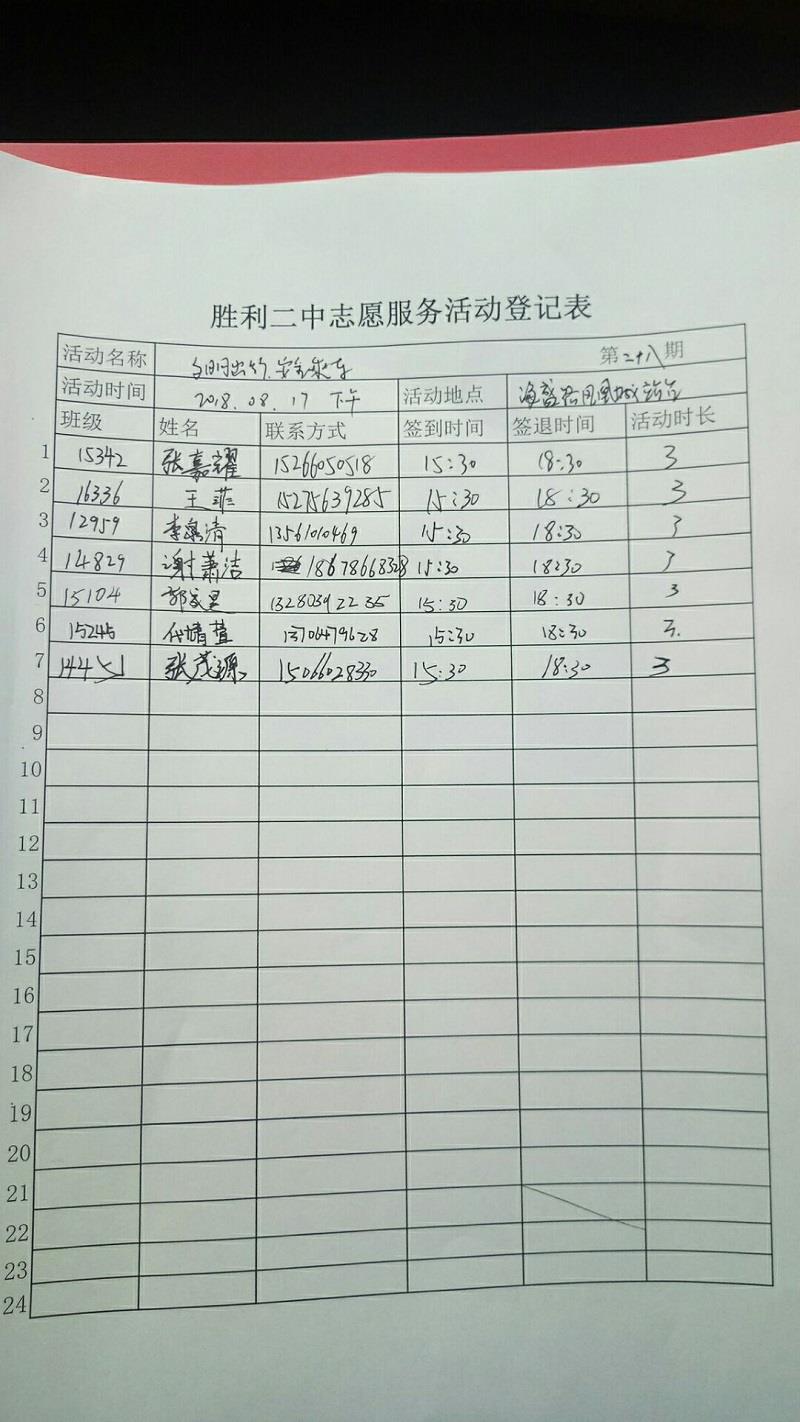 胜利二中志愿服务活动登记表
活动名称 文明出行.安全乘车 第二十八期
活动时间 2018.08.17 下午 活动地点
班级 姓名 联系方式 签到时间 签退时间 活动时长
1 15342 张嘉耀 15266050518 15:30 18:30 3
2 16336 王菲 15275639285 15:30 18:30 3
3 12959 李 清 13561010469 15:30 18:30 3
4 14829 谢萧洁 18678668328 15:30 18:30 3
5 15104 郭 15:30 18:30 3
6 15245 代婧萱 13706479628 15:30 18:30 3.
7 14451 张茂源 15066028330 15:30 18:30 3
8
9
10
11
12
13
14
15
16
17
18
19
20
21
22
23
24